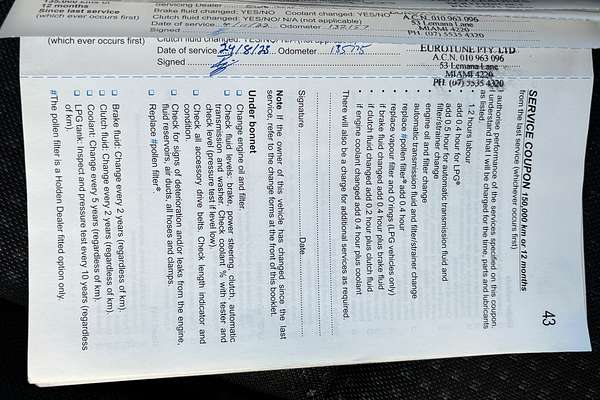 (which ever occurs first)
Since last service
(which ever first)
Brake fluid changed: YES/NO Coolant changed: YES/NO
Clutch fluid changed: YES/NO/ N/A (not applicable)
Date of service Odometer
Signed
A.C.N. 010 963 096
53 Lemana Lane
MIAMI 4220
PH. (07) 5535 4320
Clutch fluid changed: YES/NO/ N/A (not applicable)
(which ever occurs first)
Date of service 24/8/23 Odometer
Signed
EUROTUNE PTY. LTD
A.C.N. 010 963 096
53 Lemana Lane
MIAMI 4220
PH. (07) 5535 4320
43
SERVICE COUPON 150,000 km or 12 months
from the last service (whichever occurs first)
I authorise performance of the services specified on this coupon.
I understand that I will be charged for the time, parts and lubricants
as listed.
• 1.2 hours labour
• add 0.4 hour for LPG®
• add 0.5 hour for automatic transmission fluid and
filter/strainer change
• engine oil and filter change
• automatic transmission fluid and filter/strainer change
• replace #pollen filter® add 0.4 hour
• replace vapour filter and O rings (LPG vehicles only)
• if brake fluid changed add 0.4 hour plus brake fluid
• if clutch fluid changed add 0.2 hour plus clutch fluid
• if engine coolant changed add 0.4 hour plus coolant
There will also be a charge for additional services as required.
Signature Date
Note If the owner of this vehicle has changed since the last
service, refer to the change forms at the front of this booklet.
Under bonnet
❑ Change engine oil and filter.
❑ Check fluid levels: brake, power steering, clutch, automatic
transmission and washer. Check coolant % with tester and
check level (pressure test if level low).
❑ Check all accessory drive belts. Check length indicator and
condition.
❑ Check for signs of deterioration and/or leaks from the engine,
fluid reservoirs, air ducts, all hoses and clamps.
❑ Replace #pollen filter®.
❑ Brake fluid: Change every 2 years (regardless of km).
❑ Clutch fluid: Change every 2 years (regardless of km).
❑ Coolant: Change every 5 years (regardless of km).
❑ LPG tank: Inspect and pressure test every 10 years (regardless
of km).
#The pollen filter is a Holden Dealer fitted option only.